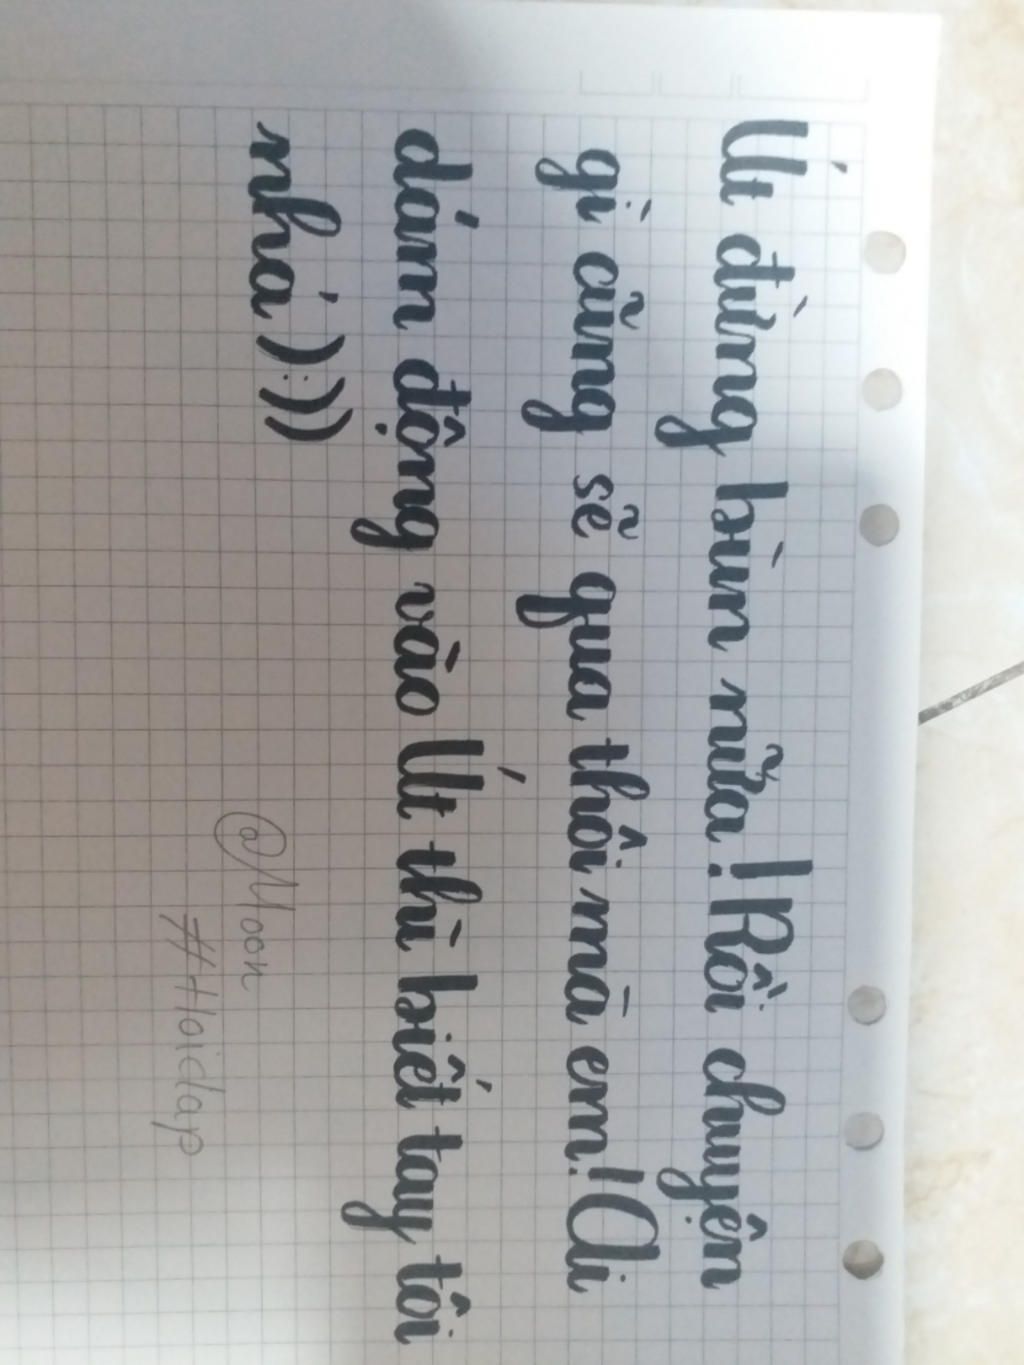 Út đừng bùn nữa! Rồi chuyện
gì cũng sẽ qua thôi mà em! Ai
dám động vào Út thì biết tay tôi
nhá ):))
@Moon
#Hoidap